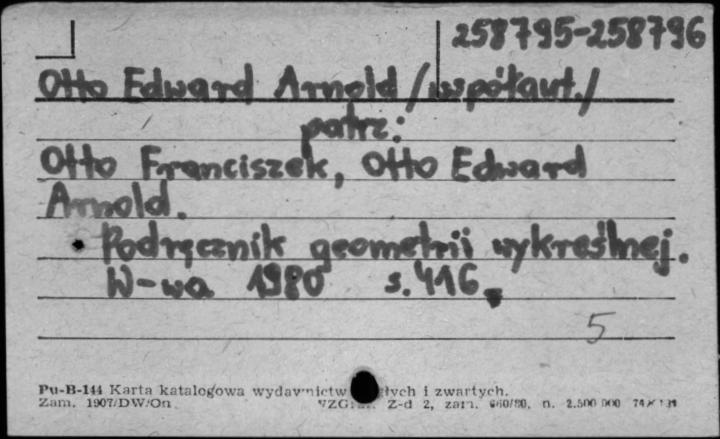 258795-258796
Otto Edward Arnold /współaut./
patrz:
Otto Franciszek, Otto Edward
Arnold.
Podręcznik geometrii wykreślnej.
W-wa 1980 s.416.
5
Pu-B-144 Karta katalogowa wydawnictw i zwartych.
Zam. 1907/DW/On Z-d 2, zam. 660/80, n. 2.500 000